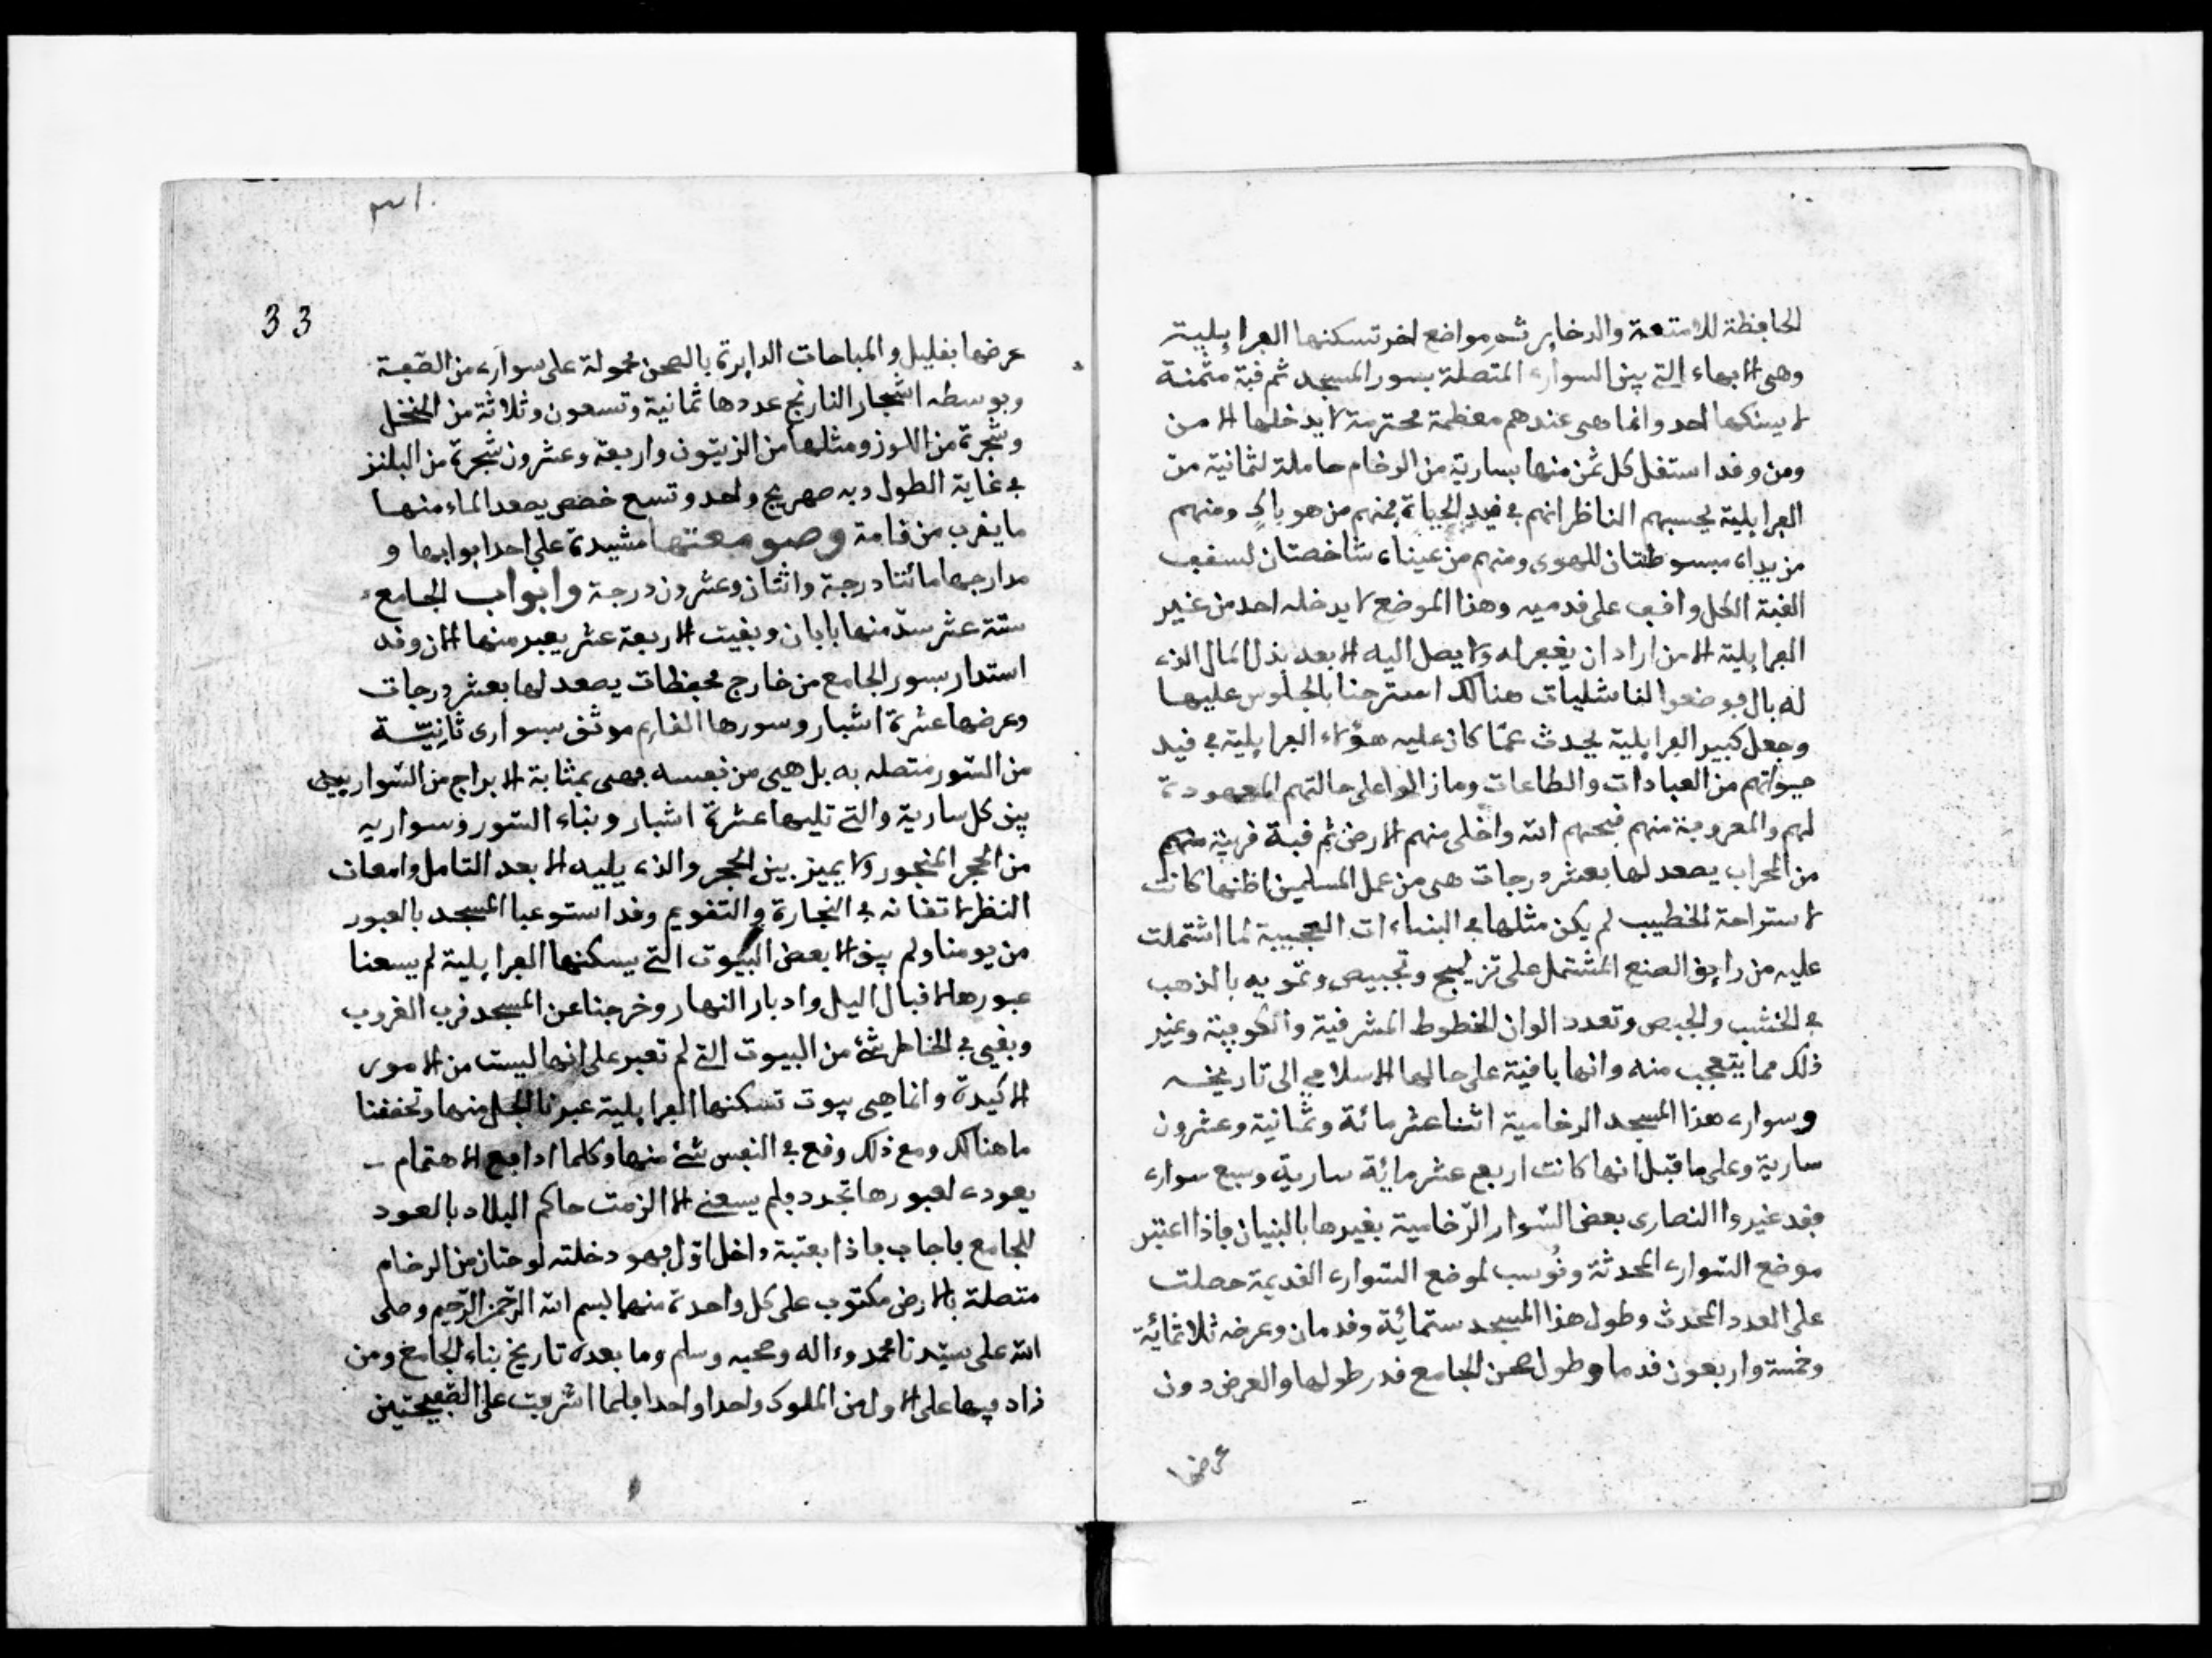 الحافظة للامتعة والدخاير ثم مواضع اخر تسكنها الفرايلية
وهي الابهاء التي بين السواري المتصلة بسور المسجد ثم قبة مثمنة
لا يسكنها احد وانما هي عندهم معظمة محترمة لا يدخلها الا من
ومن وقد استقل كل ثمن منها بسارية من الرخام حاملة لثمانية من
الفرايلية يحسبهم الناظر انهم في قيد الحياة فمنهم من هو باك ومنهم
من يداه مبسوطتان للهوى ومنهم من عيناه شاخصتان لسقف
القبة الكل واقف على قدميه وهذا الموضع لا يدخله احد من غير
الفرايلية الا من اراد ان يغفر له ولا يصل اليه الا بعد بذل المال الذي
له بال فوضعوا لنا شليات هنالك استرحنا بالجلوس عليها
وجعل كبير الفرايلية يحدث عما كان عليه هؤلاء الفرايلية في قيد
حيواتهم من العبادات والطاعات وما زالوا على حالتهم المعهودة
لهم والمعروفة منهم قبحهم الله واخلى منهم الارض ثم قبة قريبة منهم
من المحراب يصعد لها بعشر درجات هي من عمل المسلمين اظنها كانت
لاستراحة الخطيب لم يكن مثلها في البناءات العجيبة لما اشتملت
عليه من رايق الصنع المشتمل على تزليج وتجبيص وتمويه بالذهب
في الخشب والجبص وتعدد الوان الخطوط المشرقية والكوفية وغير
ذلك مما يتعجب منه وانها باقية على حالها الاسلامي الى تاريخه
وسواري هذا المسجد الرخامية اثنا عشر مائة وثمانية وعشرون
سارية وعلى ما قيل انها كانت اربع عشر ماية سارية وسبع سواري
فقد غيروا النصارى بعض السوار الرخامية بغيرها بالبنيان فاذا اعتبر
موضع السواري المحدثة ونُوسب لموضع السواري القديمة حصلت
على العدد المحدث وطول هذا المسجد ستمائة وقدمان وعرضه ثلاثمائة
وخمسة واربعون قدما وطول صحن الجامع قدر طولها والعرض دون
عرضها
٣١
33
عرضها بقليل والمباحات الدايرة بالصحن محمولة على سواري من الصّفة
وبوسطه اشجار النارنج عددها ثمانية وتسعون وثلاثة من النخل
وشجرة من اللوز ومثلها من الزيتون واربعة وعشرون شجرة من البلنز
في غاية الطول وبه صهريج واحد وتسع خصص يصعد الماء منها
ما يقرب من قامة وصومعتها مشيدة على احد ابوابها و
مدارجها مائتا درجة واثنان وعشرون درجة وابواب الجامع
ستة عشر سدّ منها بابان وبقيت الاربعة عشر يعبر منها الان وقد
استدار بسور الجامع من خارج محفظات يصعد لها بعشر درجات
وعرضها عشرة اشبار وسورها القايم موثق بسوارى ثانيّة
من السّور متصله به بل هي من نفسه فهي بمثابة الابراج من السّوار بيين
بين كل سارية والتي تليها عشرة اشبار وبناء السّور وسواريه
من الحجر المنجور ولا يميز بين الحجر والذي يليه الا بعد التامل وامعان
النظر لاتقانه في النجارة والتقويم وقد استوعبا المسجد بالعبور
من يومنا ولم يبق الا بعض البيوت التي يسكنها الفرايلية لم يسعنا
عبورها لاقبال اليل وادبار النهار وخرجنا عن المسجد قرب الغروب
وبقى في الخاطر شئ من البيوت التي لم تعبر على انها ليست من الامور
الاكيدة وانما هي بيوت تسكنها الفرايلية عبرنا الجل منها وتحققنا
ما هنالك ومع ذلك وقع في النفس شئ منها وكلما ادافع الاهتمام
يعودي لعبورها تجدد فلم يسعني الا الزمت حاكم البلاد بالعود
للجامع فاجاب فاذا بعتبة داخل اوّل بهو دخلته لوحتان من الرخام
متصلة بالارض مكتوب على كل واحدة منهما بسم الله الرّحمن الرّحيم وصلى
الله على سيّدنا محمد وءاله وصحبه وسلم وما بعده تاريخ بناء الجامع ومن
زاد فيها على الاول من الملوك واحدا واحدا فلما اشرفت على الصّفيحتين